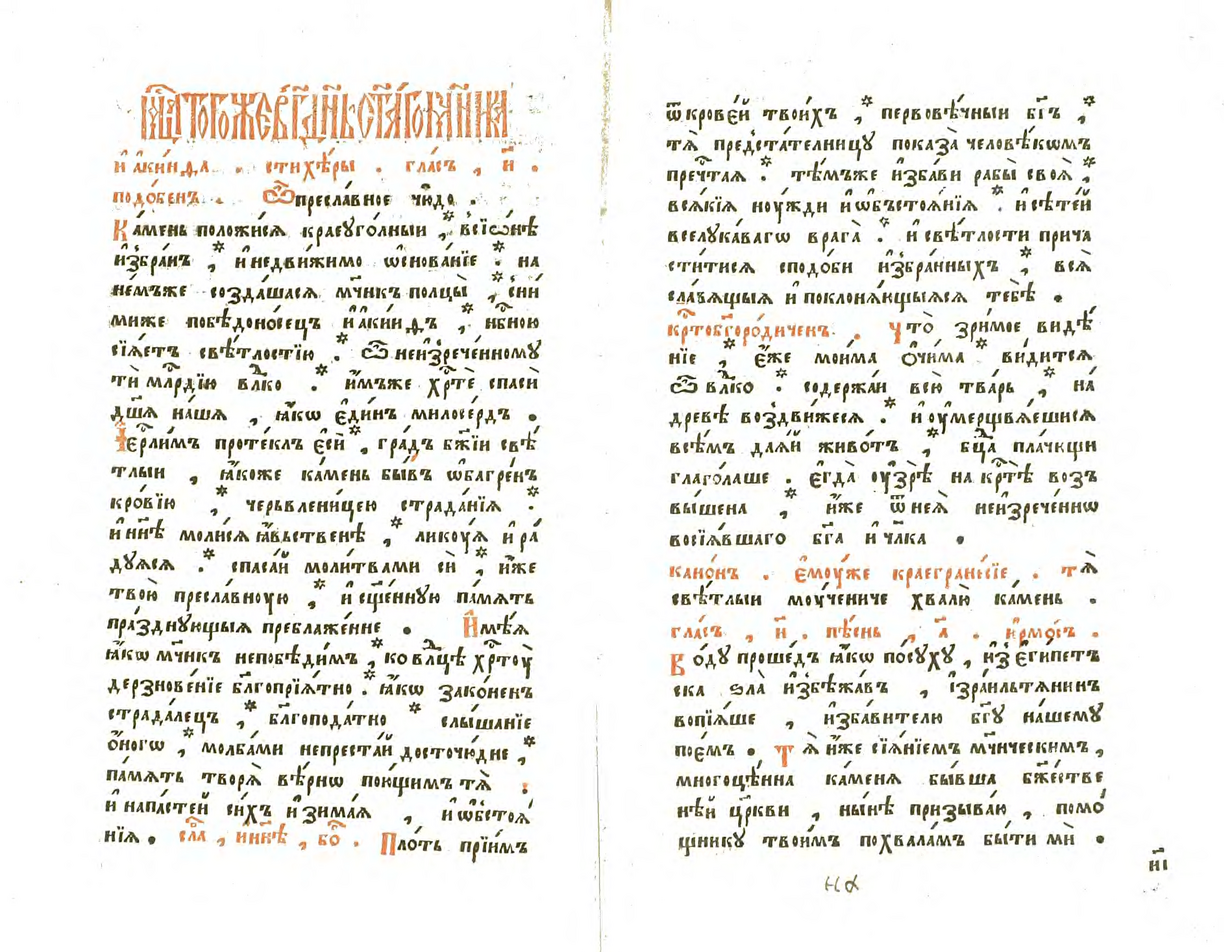 мⷭ҇ца тогоже в҃ г҃ дн҃ь ст҃а́го мч҃нка
и҆акинѳа . стихе́ры . гла́съ , и҃ .
подо́бенъ . Ѽ пресла́вное чю́до .
Ка́мень положи́сѧ краеуго́лныи , * всїѡ́нѣ
и҆збра́нъ , * и҆ недви́жимо ѡ҆снова́нїе . * на
не́мъже созда́шасѧ мч҃нкъ полцы̀ , * сни́
миже побѣдоно́сецъ и҆аки́нѳъ , * нб҃ною
сїѧ́етъ свѣ́тлостїю . * Ѽ неи҆зрече́нному
ти̂ млⷭ҇рдїю влⷣко . * и҆́мъже хрⷭ҇те̂ спаси̂
дш҃ѧ на́шѧ , ꙗ҆́кѡ є҆ди́нъ милосе́рдъ .
І҆ерⷭ҇ли́мъ проте́клъ є҆сѝ , * гра́дъ бж҃їи свѣ́
тлыи , ꙗ҆́коже ка́мень бы́въ ѡ҆багре́нъ
кро́вїю , * черьвлени́цею страда́нїѧ . *
и҆ нн҃ѣ моли́сѧ ꙗ҆́вьственѣ , * лику́ѧ и҆ ра́
дуѧсѧ . * спаса́й моли́твами сѝ , * и҆̀же
твою̀ пресла́вноую , * и҆ сщ҃е́нную па́мѧть
пра́зднующыѧ преблаже́нне . И҆мѣ́ѧ
ꙗ҆́кѡ мч҃нкъ непобѣди́мъ , * ко влⷣцѣ хрⷭ҇тоу̀
дерзнове́нїе бл҃гопрїѧ́тно . * ꙗ҆́кѡ зако́ненъ
страда́лецъ , * бл҃гопода́тно * слы́шанїе
о҆́ногѡ , * молба́ми непреста́й досточю́дне , *
па́мѧть творѧ̀ вѣ́рнѡ пою́щимъ тѧ̀ :
и҆ напа́стей си́хъ и҆зима́ѧ , и҆ ѡ҆бстоѧ́
нїѧ . сла́ , и҆ нн҃ѣ , бо̀ . Пло́ть прїи́мъ
ѿ крове́й твои́хъ , * первовѣ́чныи бг҃ъ , *
тѧ̀ предста́телницу показа̀ человѣ́кѡмъ
прⷱ҇таѧ . * тѣ́мъже и҆зба́ви рабы̀ своѧ̀ , *
всѧ́кїѧ ноу́жди и҆ ѡ҆бъстоѧ́нїѧ . * и҆ сѣте́й
вселука́вагѡ врага̀ . * и҆ свѣ́тлости прича
сти́тисѧ сподо́би и҆збра́нныхъ , * всѧ̀
сла́вѧщыѧ и҆ поклонѧ́ющыѧсѧ тебѣ̀ .
крⷭ҇тобг҃оро́диченъ . Что̀ зри́мое видѣ́
нїе , * є҆́же мои́ма о҆чи́ма * ви́дитсѧ
Ѽ влⷣко . * содержа́и всю̀ тва́рь , * на́
древѣ воздви́жесѧ . * и҆ оу҆мерщвлѧ́ешисѧ
всѣ́мъ даѧ́й живо́тъ , * бцⷣа пла́чющи
глаго́лаше . є҆гда̀ оу҆зрѣ̀ на крⷭ҇тѣ̀ возъ
вы́шена , * и҆́же ѿ неѧ̀ неи҆зрече́ннѡ
возсїѧ́вшаго бг҃а и҆ чл҃ка .
кано́нъ . є҆моу́же краегране́сїе . тѧ̀
свѣ́тлыи моу́чениче хвалю̀ ка́мень .
гла́съ , и҃ . пѣ́снь , а҃ . і҆рмо́съ .
Во́ду проше́дъ ꙗ҆́кѡ по́суху , и҆з̾ є҆гипетъ
ска ѕла̀ и҆збѣжа́въ , і҆зра́ильтѧнинъ
вопїѧ́ше , и҆зба́вителю бг҃у на́шему
пое́мъ . Тѧ̀ и҆́же сїѧ́нїемъ мч҃ническимъ ,
многоцѣ́нна ка́менѧ бы́вша бже́стве
нѣй цр҃кви , ны́нѣ призыва́ю , помо́
щнику твои́мъ похвала́мъ бы́ти мѝ .
и҃і
на